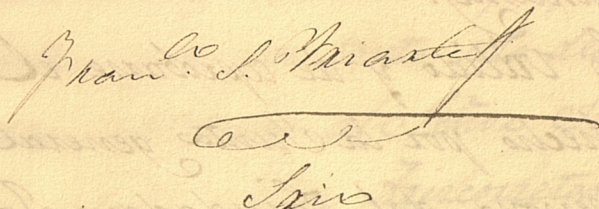 Fran.co S. Yriarte
Srio